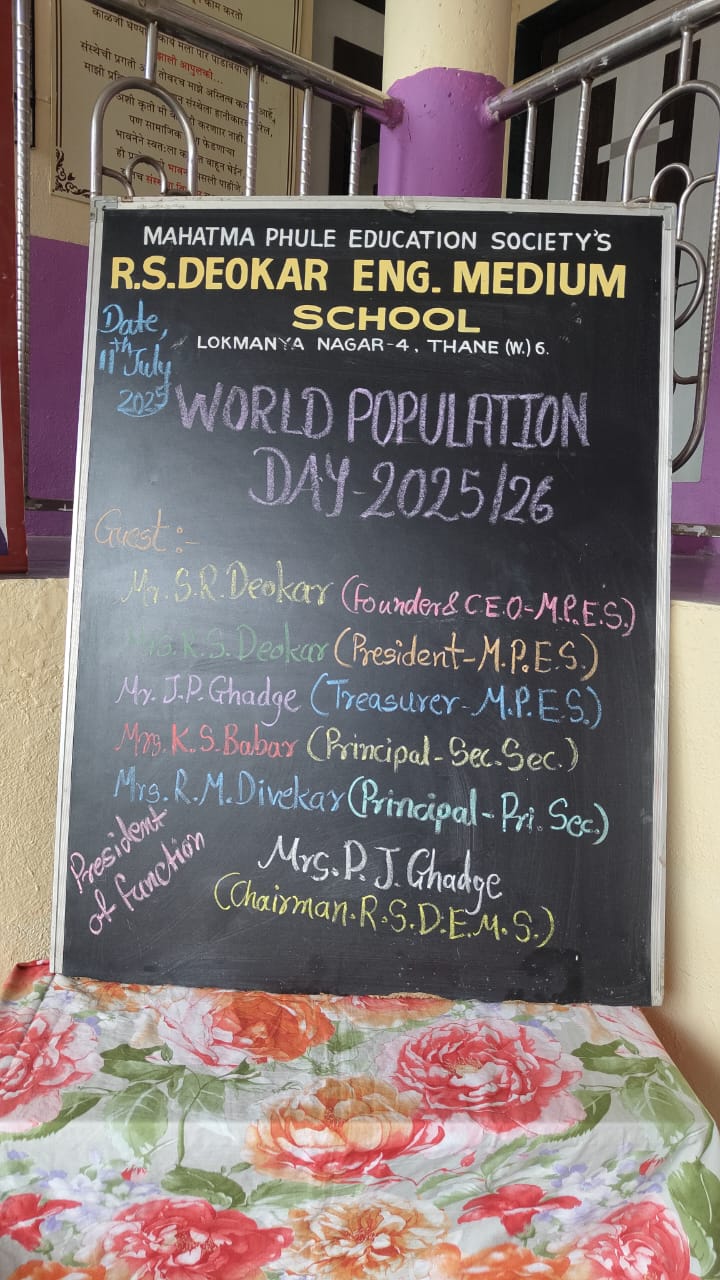 काळजी घेण्या
संस्थेची प्रगती
MAHATMA PHULE EDUCATION SOCIETY'S
R.S.DEOKAR ENG. MEDIUM
SCHOOL
LOKMANYA NAGAR-4, THANE (W.) 6.
Date,
11th July
2025
WORLD POPULATION
DAY-2025/26
Guest:-
Mr. S.R. Deokar (Founder & C.E.O-M.P.E.S.)
Mrs. R.S. Deokar (President-M.P.E.S.)
Mr. J.P. Ghadge (Treasurer-M.P.E.S.)
Mrs. K.S. Babar (Principal-Sec. Sec.)
Mrs. R.M. Divekar (Principal-Pri. Sec.)
President
of function
Mrs. P. J. Ghadge
(Chairman. R.S.D.E.M.S.)